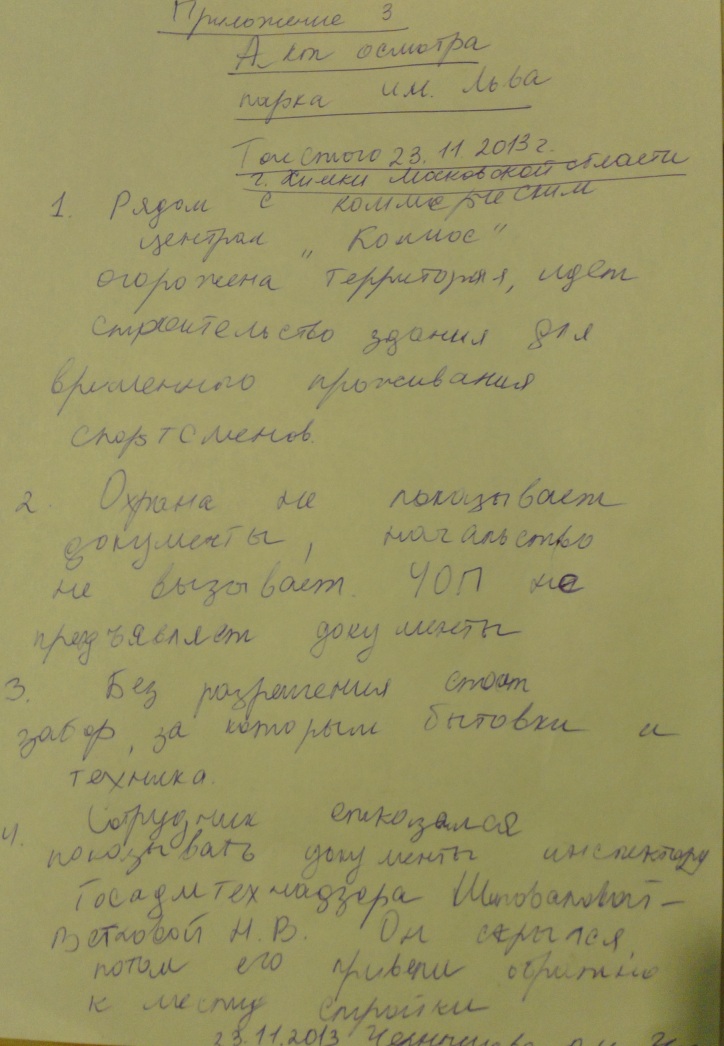 Приложение 3
Акт осмотра
парка им. Льва
Толстого 23.11.2013 г.
г. Химки Московской области
1. Рядом с коммерческим
централ „Космос”
огорожена территория, идет
строительство здания для
временного проживания
спортсменов.
2. Охрана не показывает
документы, начальство
не вызывает. ЧОП не
предъявляет документы
3. Без разрешения стоит
забор, за которым бытовки и
техника.
4. Сотрудник отказался
показывать документы инспектору
Госадмтехнадзора Шаповаловой-
Ветковой Н.В. Он скрылся,
потом его привели обратно
к месту стройки
23.11.2013